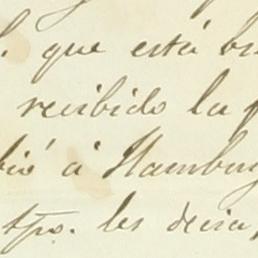 que está
recibido la
á Hamburg
tpo. les decia,